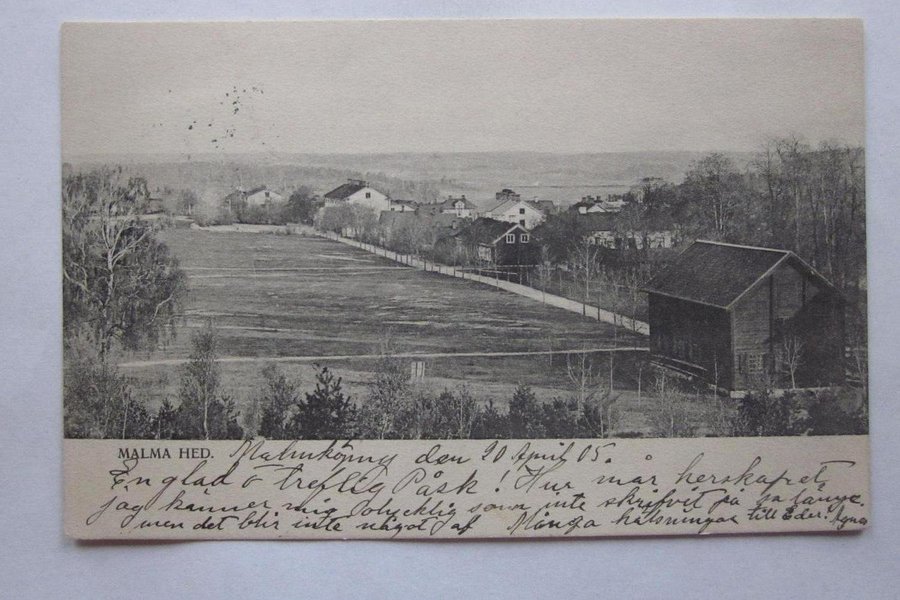 MALMA HED. Malmköping den 20 April 05.
En glad o treflig Påsk! Hur mår herskapet,
jag känner mig olycklig som inte skrifvit på så länge
men det blir inte något af Många hälsningar till Eder. Agnes